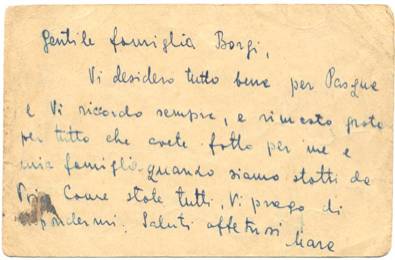 Gentile famiglia Borgi,
Vi desidero tutto bene per Pasqua
e Vi ricordo sempre, e rimasto grato
per tutto che avete fatto per me e
mia famiglia quando siamo stotti da
Come stole tutti, Vi prego di
rispondermi. Saluti affetusi
Mara